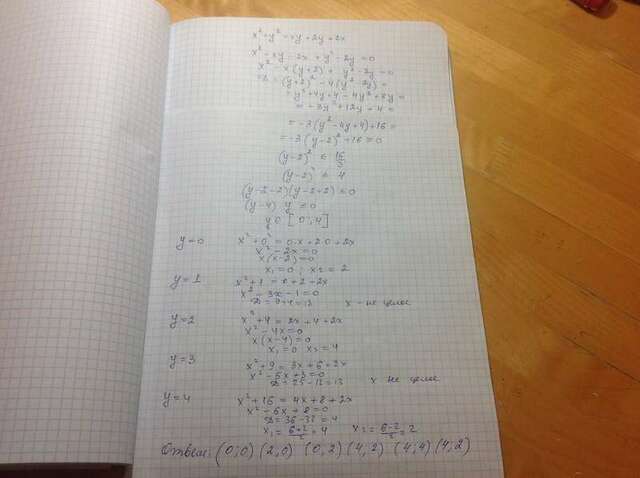 x² + y² = xy + 2y + 2x
x² - xy - 2x + y² - 2y = 0
x² - x(y+2) + y² - 2y = 0
D = (y+2)² - 4(y² - 2y) =
= y² + 4y + 4 - 4y² + 8y =
= -3y² + 12y + 4 =
= -3(y² - 4y + 4) + 16 =
= -3(y-2)² + 16 ≥ 0
(y-2)² ≤ 16/3
(y-2)² ≤ 4
(y-2-2)(y-2+2) ≤ 0
(y-4) y ≤ 0
y ∈ [0; 4]
y=0 x² + 0² = 0·x + 2·0 + 2x
x² - 2x = 0
x(x-2) = 0
x₁ = 0 ; x₂ = 2
y=1 x² + 1 = x + 2 + 2x
x² - 3x - 1 = 0
D = 9+4 = 13 x - не целое
y=2 x² + 4 = 2x + 4 + 2x
x² - 4x = 0
x(x-4) = 0
x₁ = 0 x₂ = 4
y=3 x² + 9 = 3x + 6 + 2x
x² - 5x + 3 = 0
D = 25 - 12 = 13 x не целое
y=4 x² + 16 = 4x + 8 + 2x
x² - 6x + 8 = 0
D = 36 - 32 = 4
x₁ = (6+2)/2 = 4 x₂ = (6-2)/2 = 2
Ответ: (0;0) (2,0) (0,2) (4,2) (4;4) (4;2)